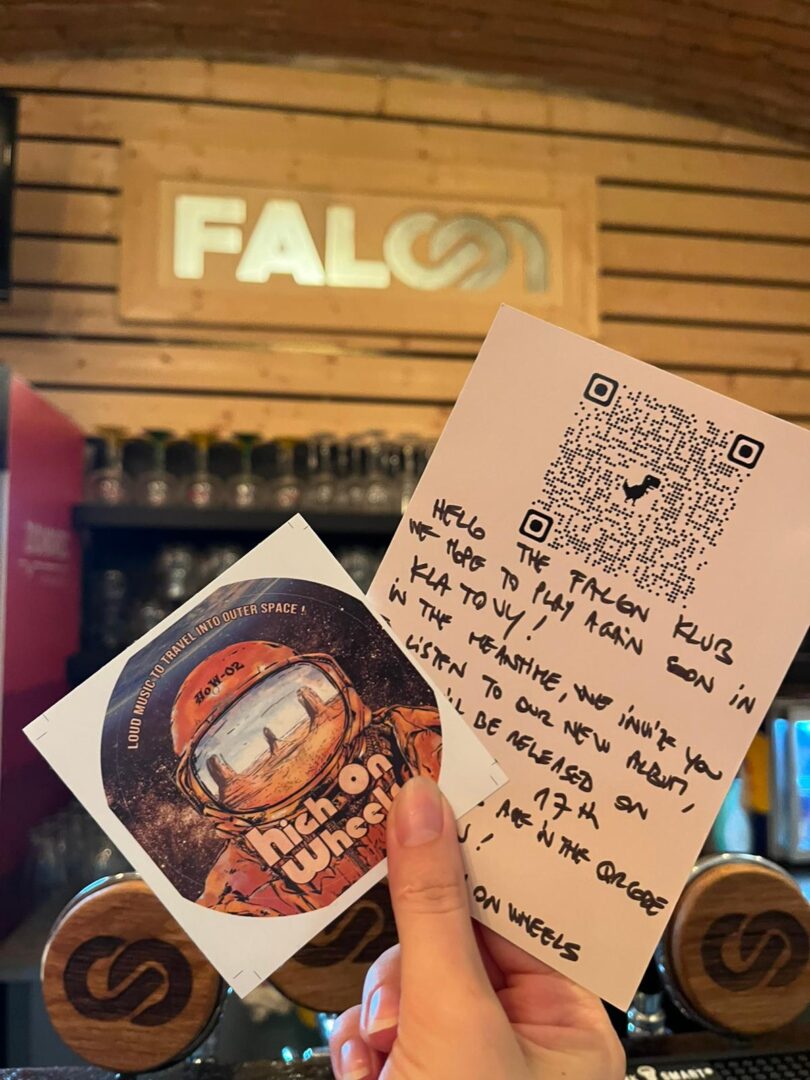 FALON
LOUD MUSIC TO TRAVEL INTO OUTER SPACE !
HOW-02
high on
Wheels
HELLO THE FALON KLUB
WE HOPE TO PLAY AGAIN SOON IN
KLATOVY!
IN THE MEANTIME, WE INVITE YOU
LISTEN TO OUR NEW ALBUM,
'LL BE RELEASED ON
17th
ARE IN THE QRCODE
!
ON WHEELS
SMART